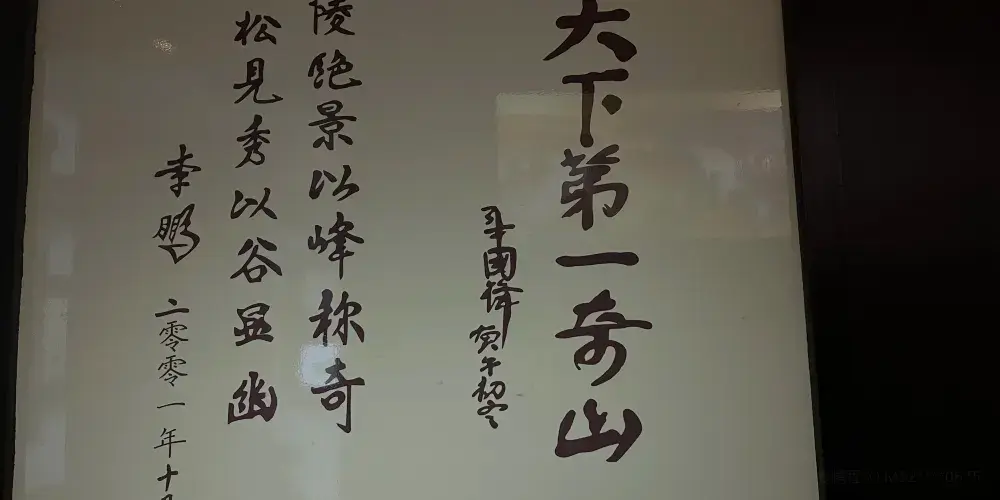 天下第一奇山
华國锋 庚午初冬
陵絶景以峰称奇
松見秀以谷显幽
李鹏 二零零一年十